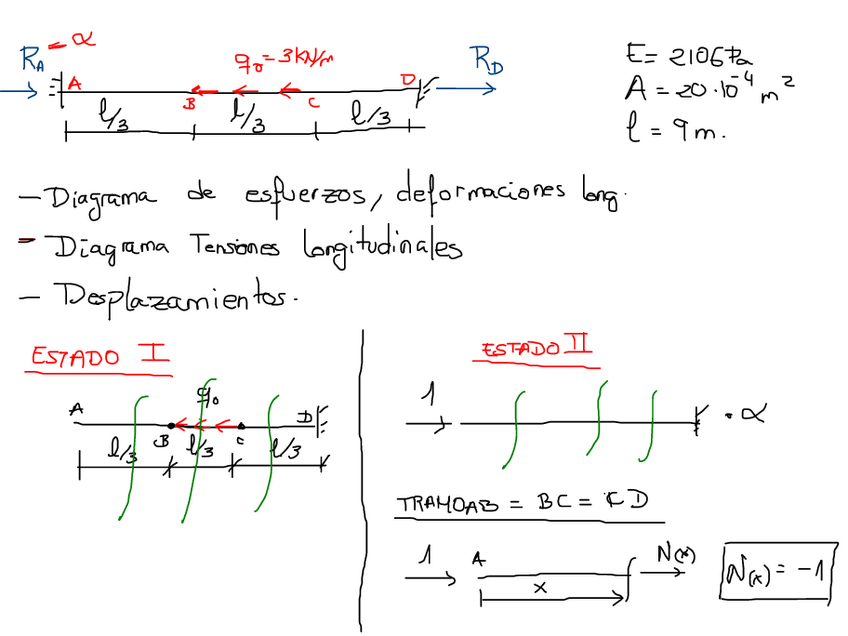 R_A = α
q₀ = 3 kN/m
R_D
A
B
C
D
l/3
l/3
l/3
E = 210 GPa
A = 20·10⁻⁴ m²
l = 9 m.
- Diagrama de esfuerzos, deformaciones long.
- Diagrama Tensiones longitudinales
- Desplazamientos.
ESTADO I
q₀
A
B
C
D
l/3
l/3
l/3
ESTADO II
1
· α
TRAMO AB = BC = CD
1
A
N(x)
x
N(x) = -1